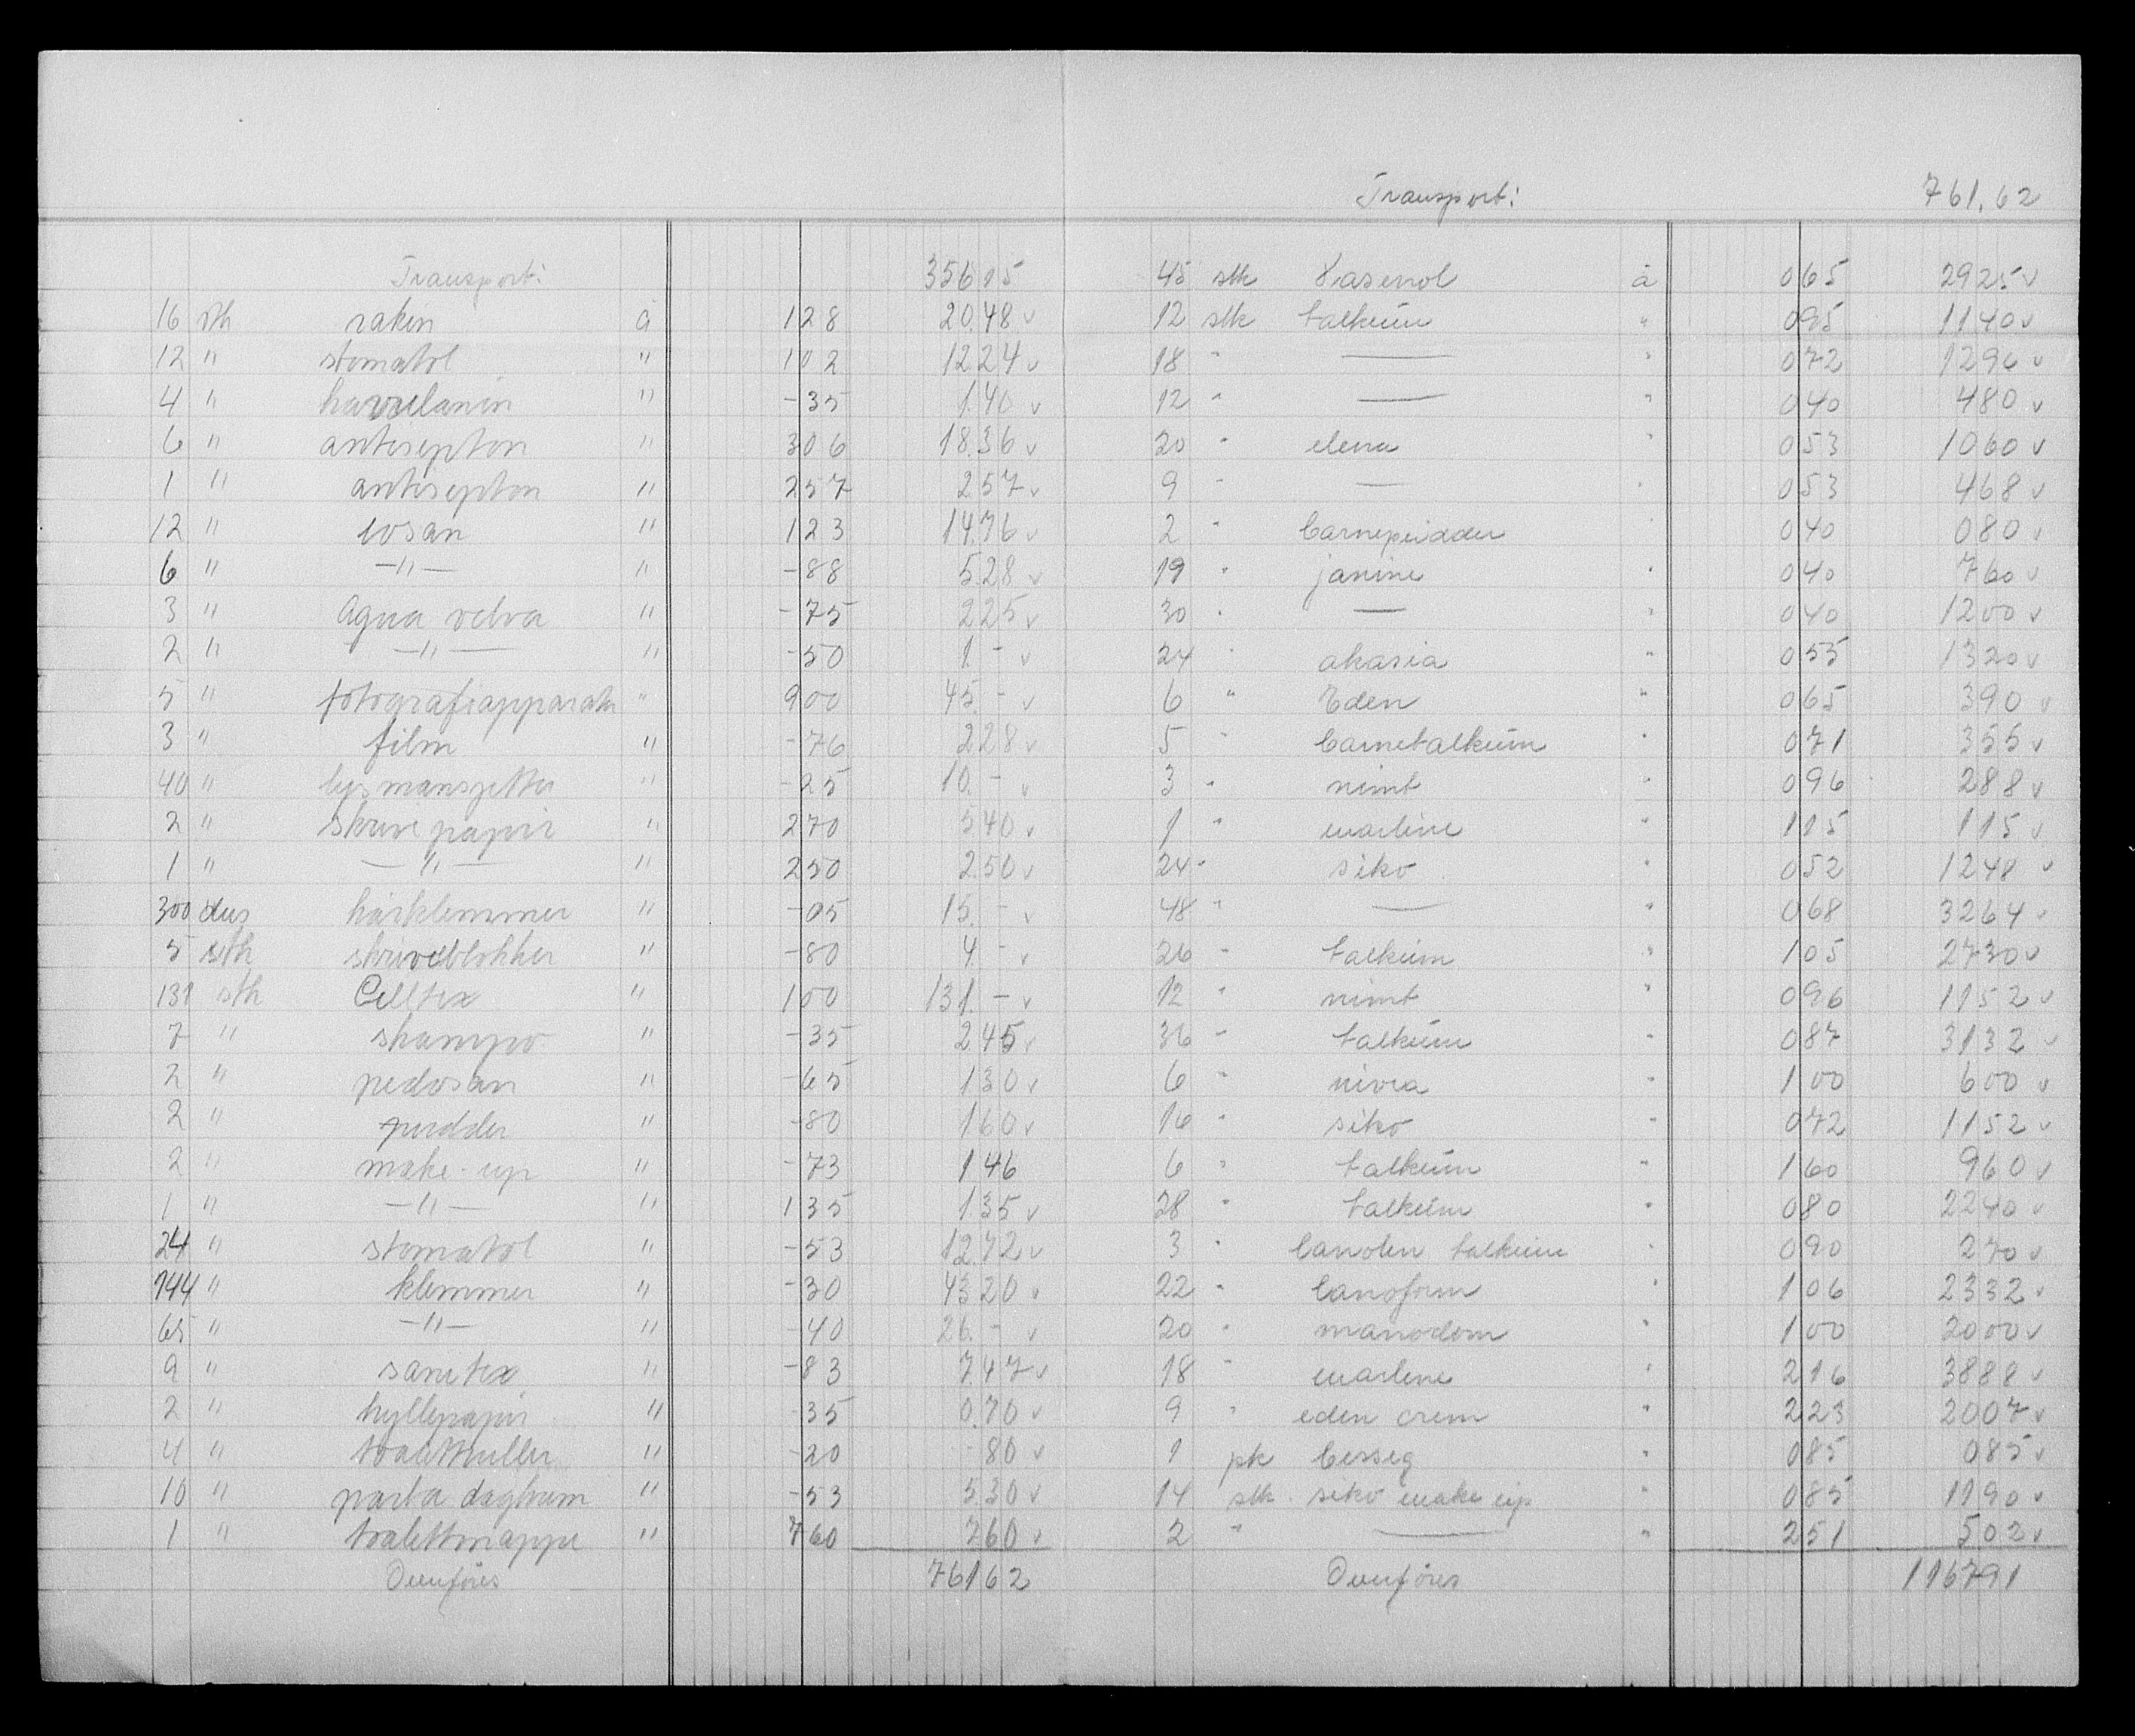 Transport: 356 15
16 stk raken à 1 28 20.48 v
12 " stomatol " 1 02 12.24 v
4 " " -35 1.40 v
6 " antisepton " 3 06 18.36 v
1 " antisepton " 2 57 2 57 v
12 " iosan " 1 23 14.76 v
6 " —"— " -88 5.28 v
3 " Aqua velva " -75 2 25 v
2 " —"— " -50 1. - v
5 " fotografiapparater " 9 00 45. - v
3 " film " -76 2.28 v
40 " lysmansjetter " -25 10. - v
2 " skrivepapir " 2 70 5.40 v
1 " —"— " 2 50 2.50 v
300 dus hårklemmer " -05 15. - v
5 stk skriveblokker " -80 4. - v
131 stk Celltex " 1 00 131. - v
7 " shampo " -35 2.45 v
2 " pedosan " -65 1 30 v
2 " pudder " -80 1 60 v
2 " make-up " -73 1 46
1 " —"— " 1 35 1.35 v
24 " stomatol " -53 12.72 v
144 " klemmer " -30 43 20 v
65 " —"— " -40 26. - v
9 " sanitex " -83 7.47 v
2 " hyllepapir " -35 0.70 v
4 " toalettruller " -20 -80 v
10 " dagkrem " -53 5.30 v
1 " toalettmappe " 7 60 7.60 v
Overføres 761 62
Transport: 761.62
45 stk Vasenol à 0 65 29 25 v
12 stk talkum " 0 95 11 40 v
18 " —— " 0 72 12 96 v
12 " —— " 0 40 4 80 v
20 " elena " 0 53 10 60 v
9 " — " 0 53 4 68 v
2 " barnepudder " 0 40 0 80 v
19 " janine " 0 40 7 60 v
30 " — " 0 40 12 00 v
24 " akasia " 0 55 13 20 v
6 " Eden " 0 65 3 90 v
5 " barnetalkum " 0 71 3 55 v
3 " nimt " 0 96 2 88 v
1 " marline " 1 15 1 15 v
24 " siko " 0 52 12 48 v
48 " —— " 0 68 32 64 v
26 " talkum " 1 05 27 30 v
12 " nimt " 0 96 11 52 v
36 " talkum " 0 87 31 32 v
6 " nivea " 1 00 6 00 v
16 " siko " 0 72 11 52 v
6 " talkum " 1 60 9 60 v
28 " talkum " 0 80 22 40 v
3 " lanolin talkum " 0 90 2 70 v
22 " lanoform " 1 06 23 32 v
20 " manodom " 1 00 20 00 v
18 " marlene " 2 16 38 88 v
9 " eden crem " 2 23 20 07 v
1 pk " 0 85 0 85 v
14 stk siko make up " 0 85 11 90 v
2 " —— " 2 51 5 02 v
Overføres 1167 91